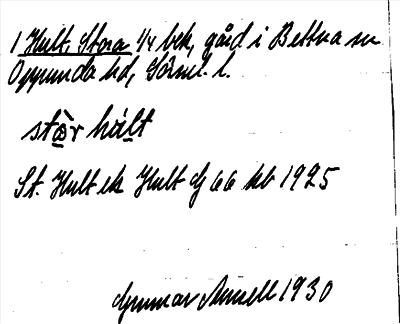 1 Hult, Stora 1/4 bek, gård i Bettna sn
Oppunda hd, Södml. l.
stæ̀r hùḷt
St. Hult ek Hult dj 66 kb 1925
Gunnar Arnell 1930